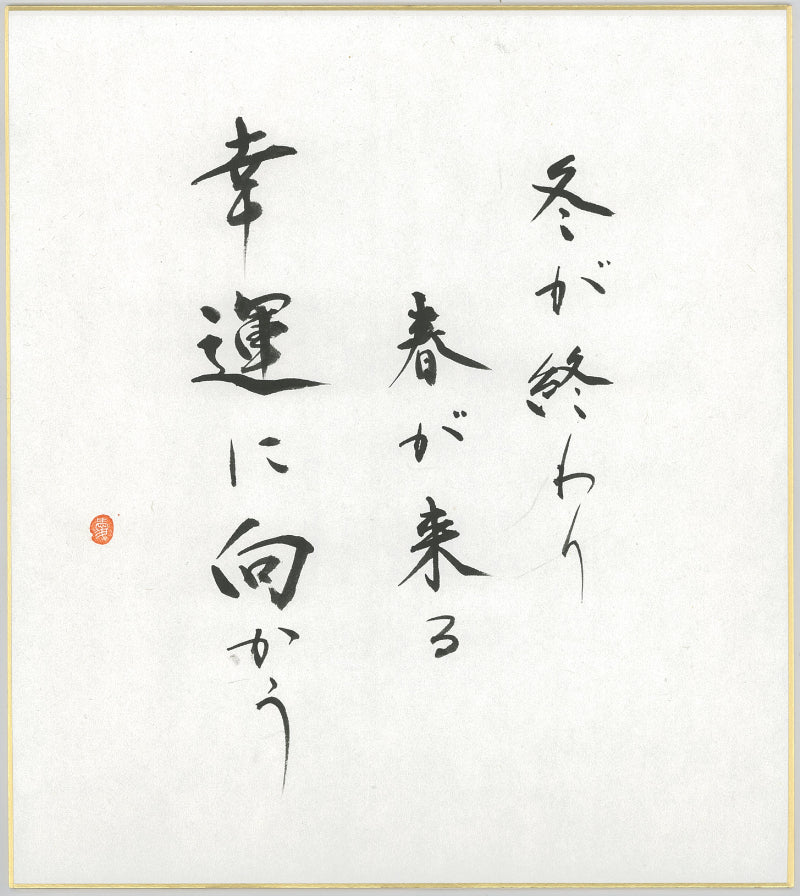 冬が終わり
春が来る
幸運に向かう